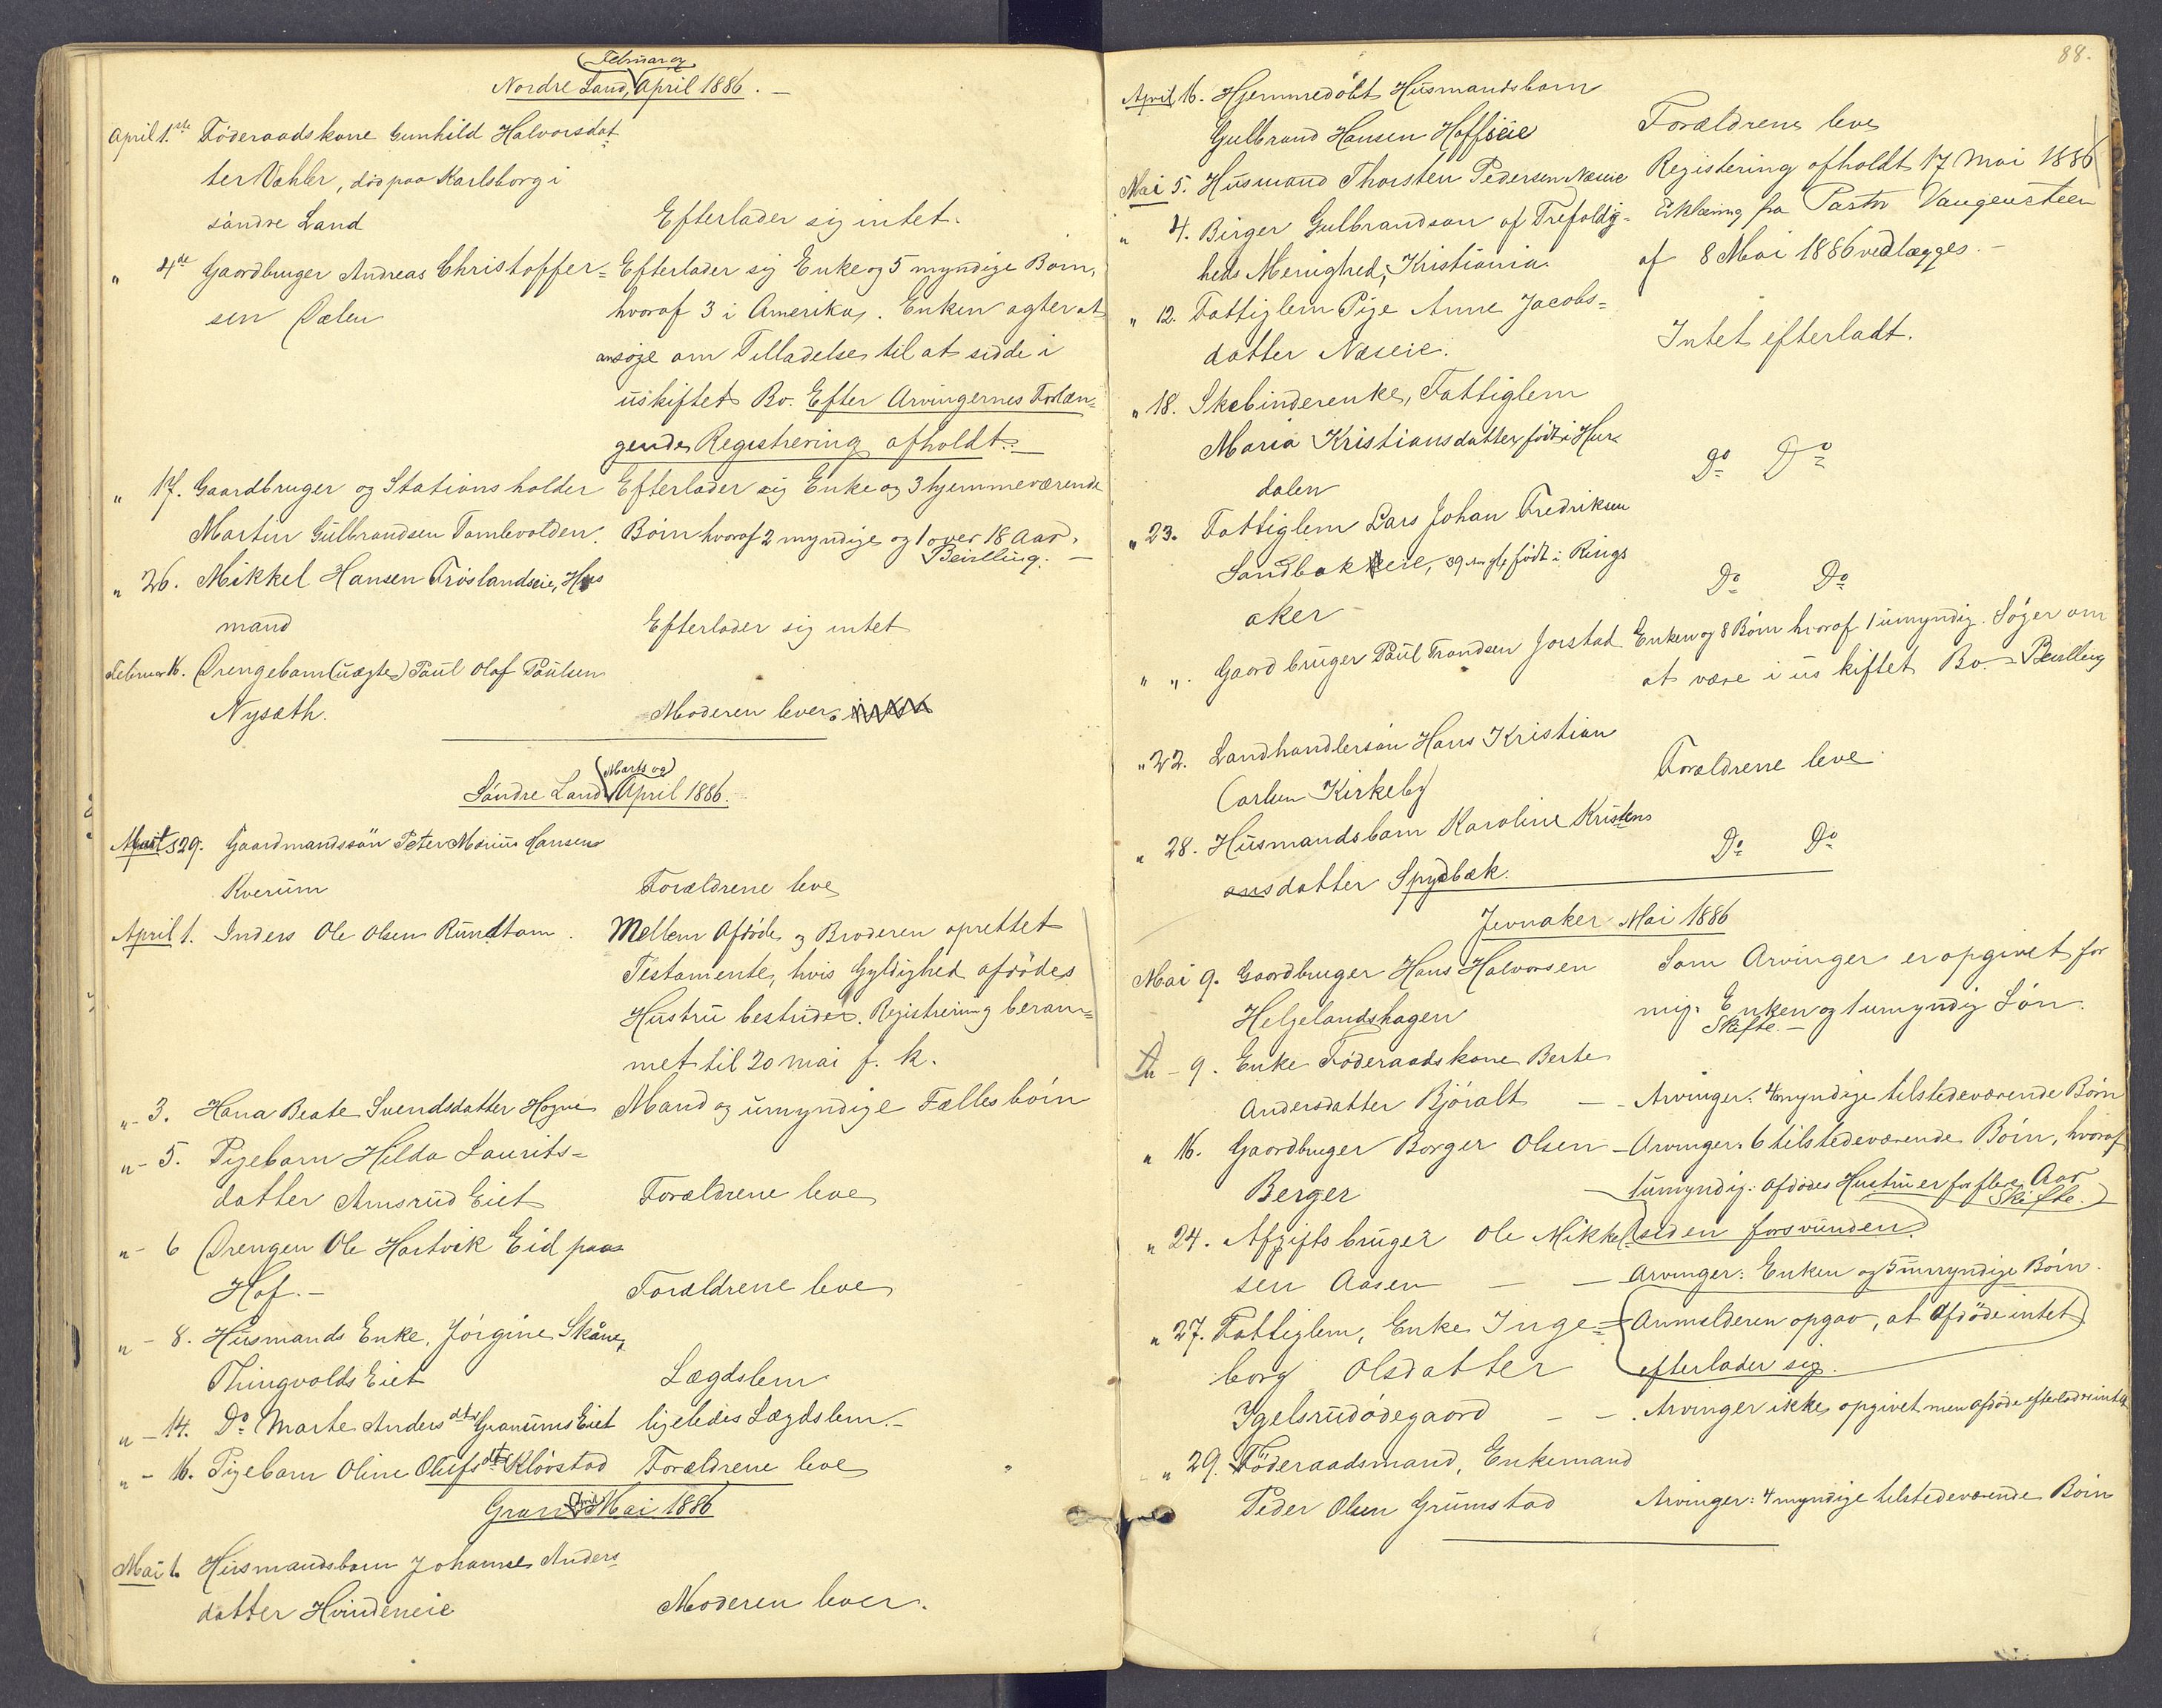 Februar og
Nordre Land, April 1886. —
April 1ste Föderaadskone Gunhild Halvorsdat
ter Vahler, död paa Karlsborg i
söndre Land
Efterlader sig intet.
" 4de Gaardbruger Andreas Christoffer= Efterlader sig Enke og 5 myndige Börn,
sen Dælen hvoraf 3 i Amerika. Enken agter at
ansöge om Tilladelse til at sidde i
uskiftet Bo. Efter Arvingernes Forlan=
gende Registrering afholdt. —
" 17. Gaardbruger og Stationsholder Efterlader sig Enke og 3 hjemmeværende
Martin Gulbrandsen Tomlevolden. Börn hvoraf 2 myndige og 1 over 18 Aar.
Bevilling. —
" 26. Mikkel Hansen Fröslandseie, Hus
mand Efterlader sig intet
Februar 16. Drengebarn (uægte) Paul Olaf Paulsen
Nysæth. Moderen lever.
Marts og
Söndre Land April 1886.
Marts 29. Gaardmandssön Peter Marius Hansen
Kverum Forældrene leve
April 1. Inders Ole Olsen Rundtom. Mellem Afdöde og Broderen oprettet
Testamente, hvis Gyldighed afdödes
Hustru bestrider. Registrering beram=
met til 20 mai f. k.
" - 3. Hana Beate Svendsdatter Hogne Mand og umyndige Fællesbörn
" - 5. Pigebarn Hilda Laurits=
datter Amsrud Eiet Forældrene leve
" - 6 Drengen Ole Hartvik Eid paa
Hof. — Forældrene leve
" - 8. Husmands Enke, Jörgine Skåne,
Thingvolds Eiet Lægdslem
" - 14. Do Marte Andersdtr Granums Eiet ligeledes Lægdslem. —
" - 16. Pigebarn Oline Olufsdtr Klövstad Forældrene leve
Gran April Mai 1886
Mai 1. Husmandsbarn Johanne Anders
datter Hvindeneie Moderen lever.
88.
April 16. Hjemmedöbt Husmandsbarn
Gulbrand Hansen Hoffseie Forældrene leve
Mai 5. Husmand Thorsten Pedersen Næseie Registering afholdt 17 Mai 1886
" 4. Birger Gulbrandson af Trefoldig= Erklæring fra Pastor Vangensteen
heds Menighed, Kristiania. af 8 Mai 1886 vedlægges. —
" 12. Fattiglem Pige Anne Jacobs=
datter Næseie. Intet efterladt.
" 18. Skobinderenke, Fattiglem
Maria Kristiansdatter födt i Hur
dalen Do Do
" 23. Fattiglem Lars Johan Fredriksen
Sandbakkeie, 39 Aar gl., födt i Rings
aker — Do Do
" ". Gaardbruger Paul Trondsen Jorstad Enken og 8 Börn hvoraf 1 umyndig. Söger om
at være i uskiftet Bo. — Bevilling
" 22. Landhandlersön Hans Kristian
Carlsen Kirkeby Forældrene leve
" 28. Husmandsbarn Karoline Kristens
ansdatter Spydbæk. Do Do
Jevnaker Mai 1886
Mai 9. Gaardbruger Hans Halvorsen Som Arvinger er opgivet for
Helgelandshagen mig: Enken og 1 umyndig Sön.
Skifte. —
" - 9. Enke Föderaadskone Berte
Andersdatter Björalt — - Arvinger: 4 myndige tilstedeværende Börn
" 16. Gaardbruger Borger Olsen - Arvinger: 6 tilstedeværende Börn, hvoraf
Berger — 1 umyndig: afdödes Hustru er for flere Aar
Skifte.
" 24. Afgiftsbruger Ole Mikkel= siden forsvunden.
sen Aasen — — Arvinger: Enken og 5 umyndige Börn.
" 27. Fattiglem, Enke Inge= Anmelderen opgav, at Afdöde intet
borg Olsdatter efterlader sig.
Ygelsrudödegaard — — . Arvinger ikke opgivet men afdöde efterlader intet
" 29. Föderaadsmand, Enkemand
Peder Olsen Grumstad Arvinger: 4 myndige tilstedeværende Börn